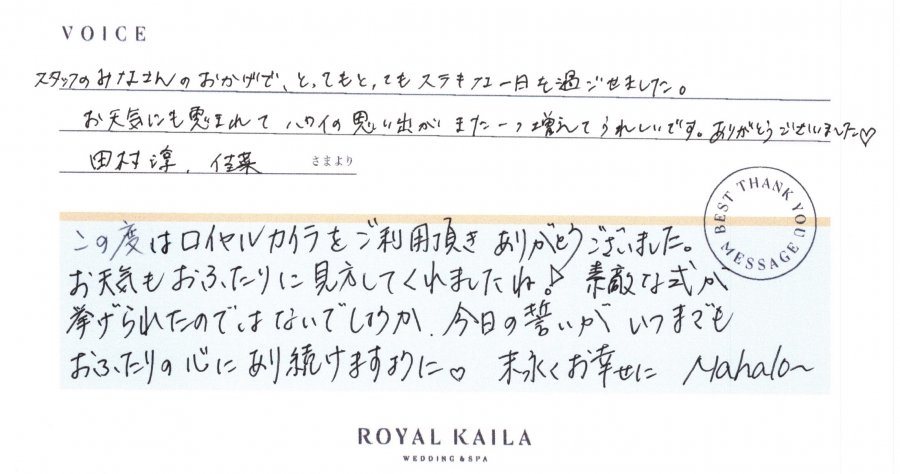 VOICE
スタッフのみなさんのおかげで、とってもとってもステキな一日を過ごせました。
お天気にも恵まれて ハワイの思い出が また一つ増えてうれしいです。ありがとうございました♡
田村淳、佳菜 さまより
BEST THANK YOU MESSAGE
この度はロイヤルカイラをご利用頂き ありがとうございました。
お天気もおふたりに見方してくれましたね♪ 素敵な式が
挙げられたのではないでしょうか、今日の誓いが いつまでも
おふたりの心にあり続けますように♡ 末永くお幸せに Mahalo~
ROYAL KAILA
WEDDING & SPA